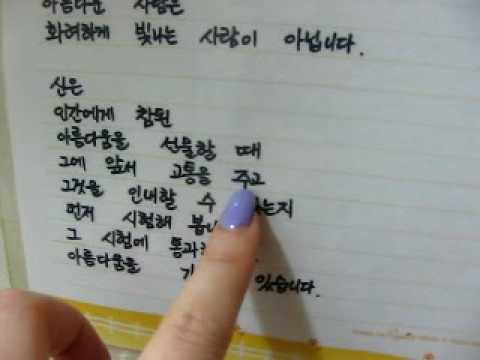 아름다운 사람은
화려하게 빛나는 사람이 아닙니다.
신은
인간에게 참된
아름다움을 선물할 때
그에 앞서 고통을 주고
그것을 인내할 수 는지
먼저 시험해 봅
그 시험에 통과
아름다움을 있습니다.